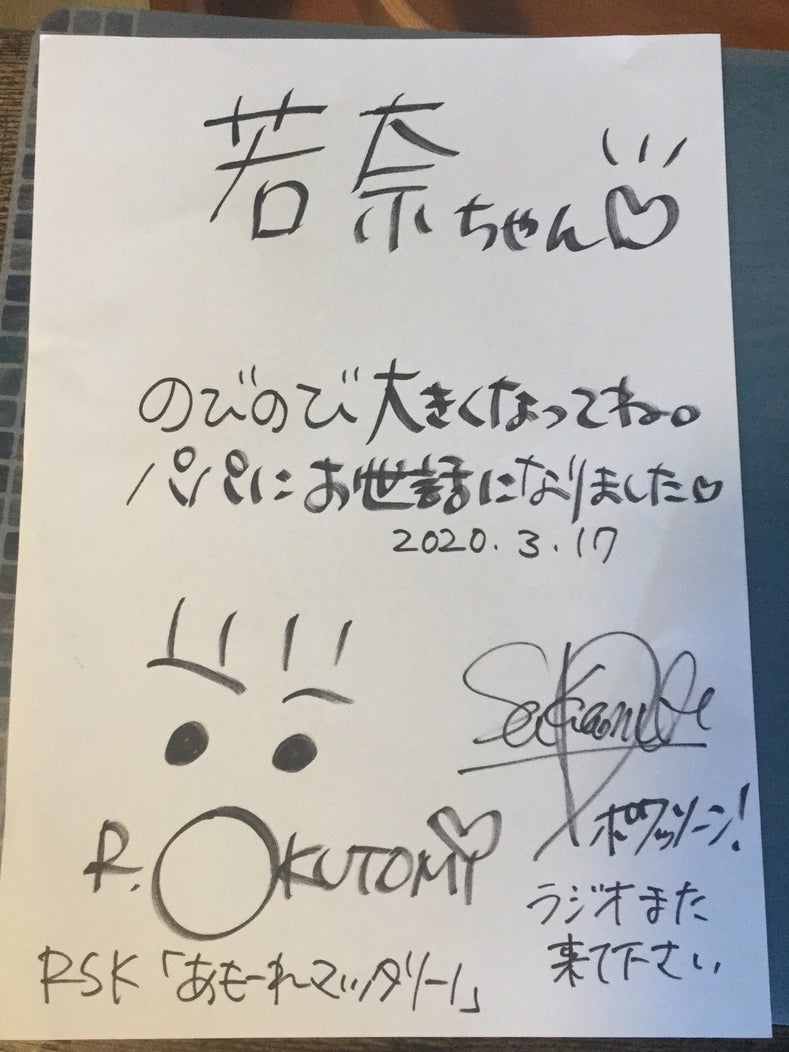 若奈ちゃん♡
のびのび大きくなってね。
パパにお世話になりました♡
2020.3.17
R.OKUTOMI
RSK「あもーれマッタリーノ」
ポワッソーン!
ラジオまた
来て下さい